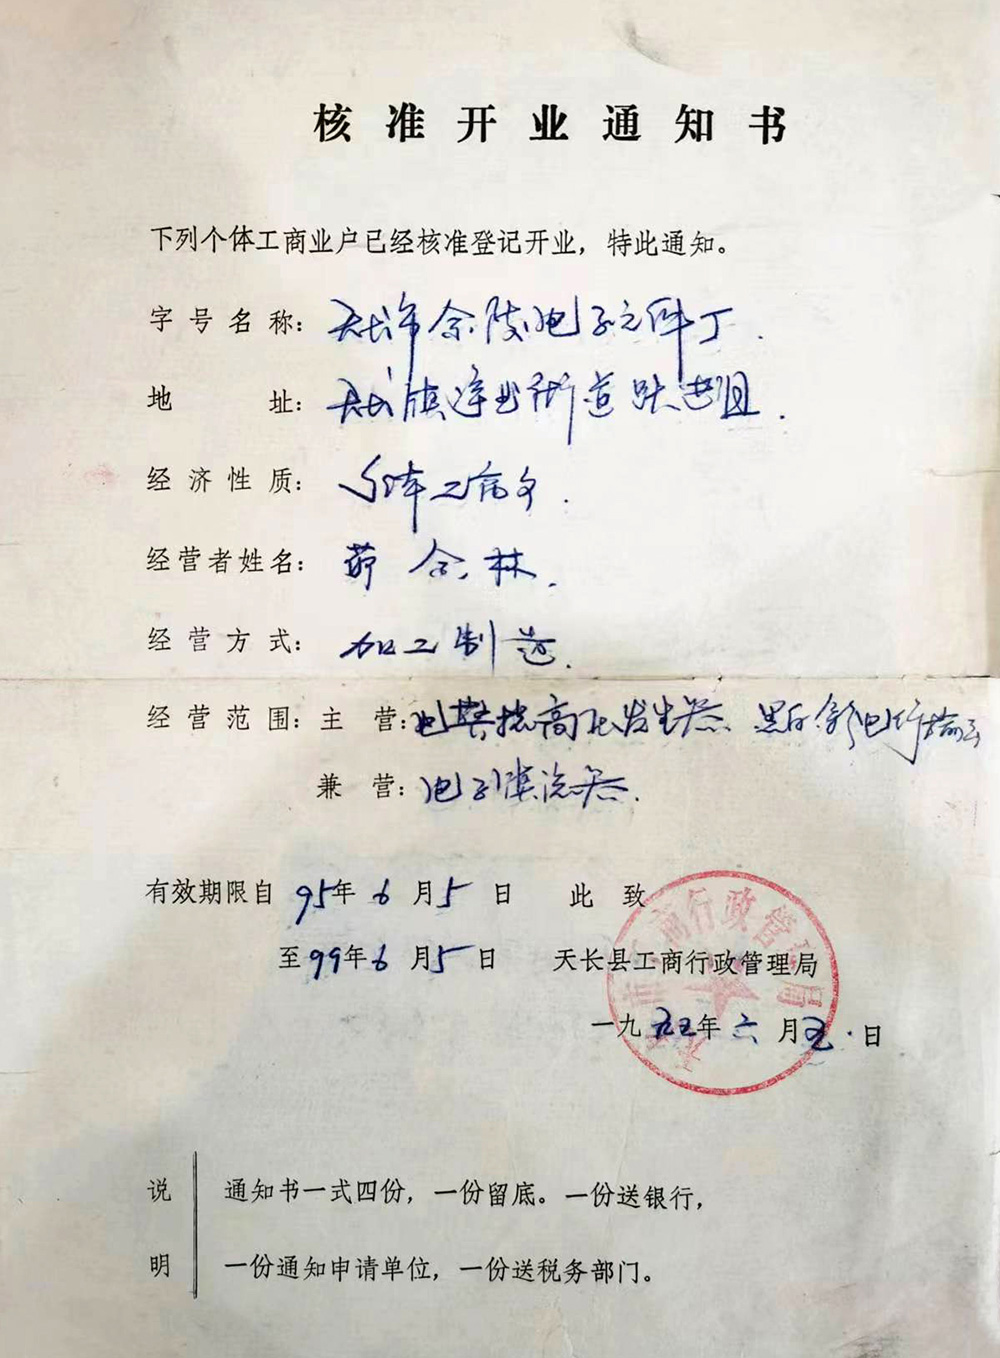 核准开业通知书
下列个体工商业户已经核准登记开业，特此通知。
字号名称：天长市余陵电子元件厂.
地址：天长镇连出街道跃进组.
经济性质：个体工商户.
经营者姓名：茆会林.
经营方式：加工制造.
经营范围：主营：高压发生器、黑白
兼营：电子镇流器.
有效期限自95年6月5日 此致
至99年6月5日 天长县工商行政管理局
一九九五年六月五日
说明
通知书一式四份，一份留底。一份送银行，
一份通知申请单位，一份送税务部门。